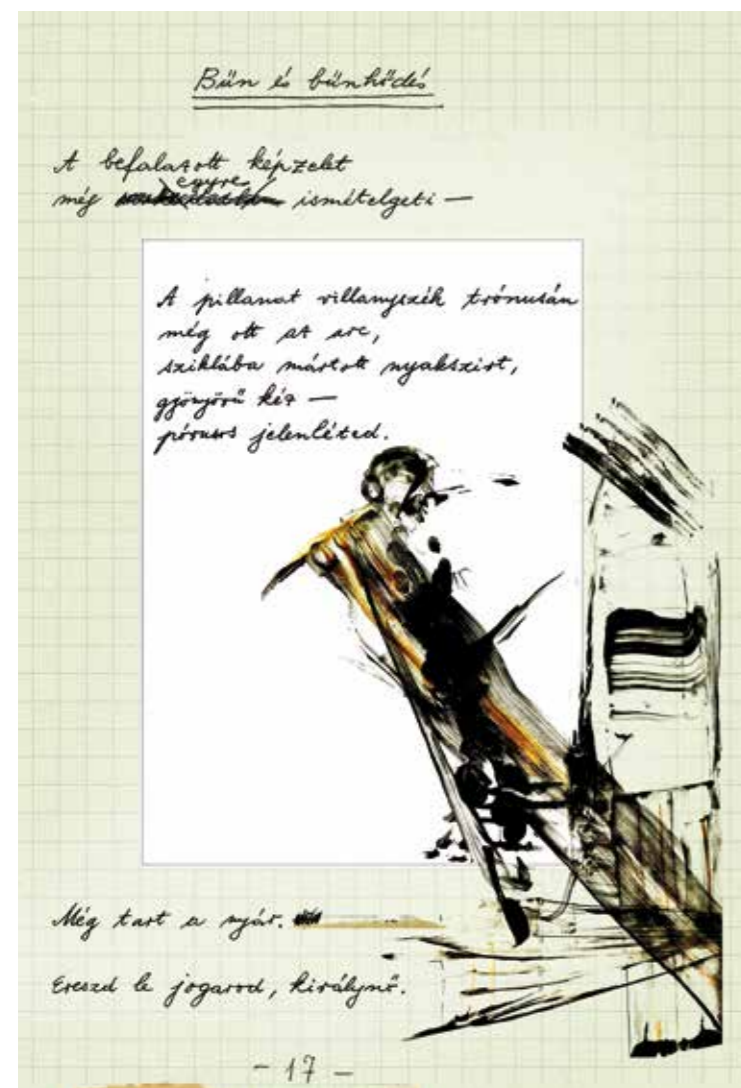 Bűn és bűnhődés
A befalazott képzelet
egyre
még ismételgeti —
A pillanat villanyszék trónusán
még ott az arc,
sziklába mártott nyakszirt,
gyönyörű kéz —
pórusos jelenléted.
Még tart a nyár.
Ereszd le jogarod, királynő.
- 17 -